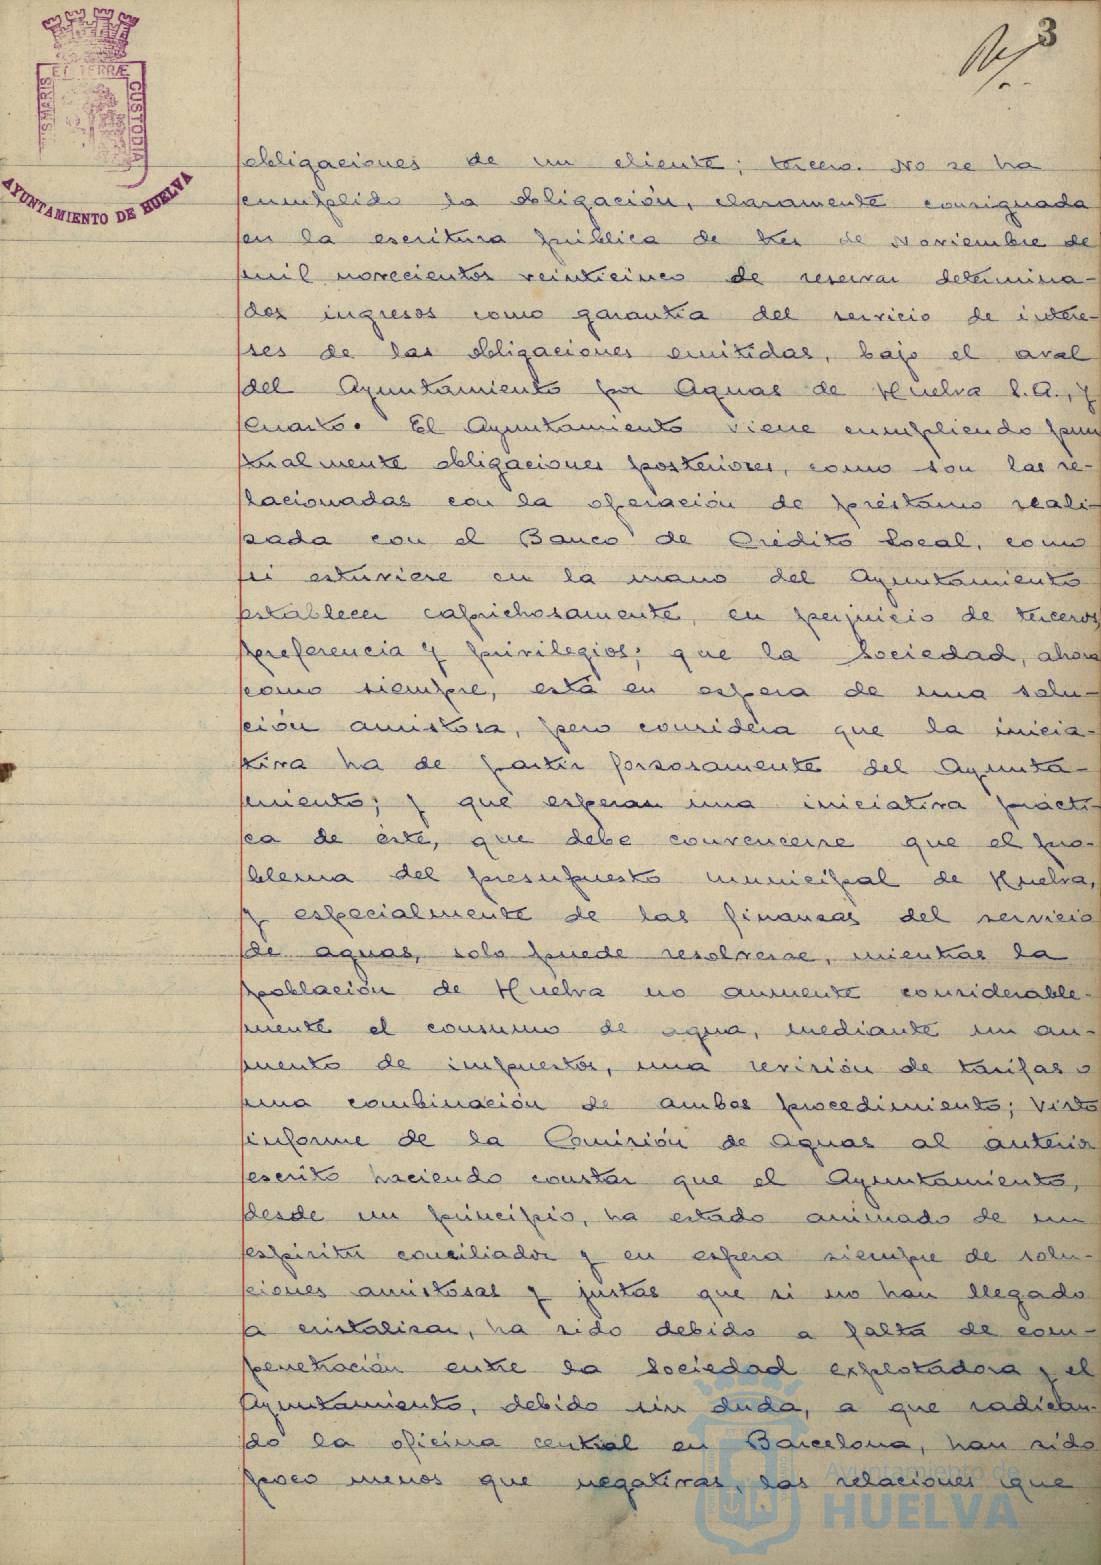 3
PORTUS MARIS
ET TERRÆ
CUSTODIA
AYUNTAMIENTO DE HUELVA
obligaciones de un cliente; tercero. No se ha
cumplido la obligación, claramente consignada
en la escritura pública de tres de Noviembre de
mil novecientos veinticinco de reservar determina-
dos ingresos como garantia del servicio de intere-
ses de las obligaciones emitidas, bajo el aval
del Ayuntamiento por Aguas de Huelva S.A., y
Cuarto. El Ayuntamiento viene cumpliendo pun
tualmente obligaciones posteriores, como son las re-
lacionadas con la operación de préstamo reali-
zada con el Banco de Crédito Local, como
si estuviese en la mano del Ayuntamiento
establecer caprichosamente, en perjuicio de terceros,
preferencia y privilegios; que la Sociedad, ahora
como siempre, está en espera de una solu-
ción amistosa, pero considera que la inicia-
tiva ha de partir forzosamente del Ayunta-
miento; y que esperan una iniciativa prácti-
ca de éste, que debe convencerse que el pro-
blema del presupuesto municipal de Huelva,
y especialmente de las finanzas del servicio
de aguas, solo puede resolverse, mientras la
población de Huelva no aumente considerable-
mente el consumo de agua, mediante un au-
mento de impuestos, una revisión de tarifas o
una combinación de ambos procedimiento; Visto
informe de la Comisión de Aguas al anterior
escrito haciendo constar que el Ayuntamiento,
desde un principio, ha estado animado de un
espiritu conciliador y en espera siempre de solu-
ciones amistosas y justas que si no han llegado
a cristalizar, ha sido debido a falta de com-
penetración entre la Sociedad explotadora y el
Ayuntamiento, debido sin duda, a que radican-
do la oficina central en Barcelona, han sido
poco menos que negativas, las relaciones que
Ayuntamiento de
HUELVA